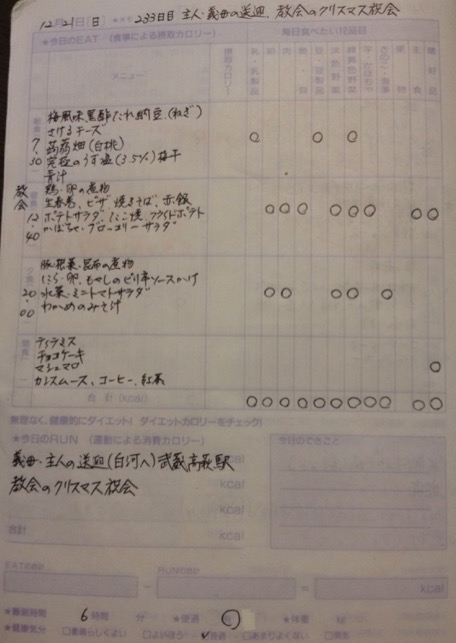 12月21日(日) 233日目 主人・義母の送迎 教会のクリスマス祝会
★今日のEAT (食事による摂取カロリー) 毎日食べたい12品目
メニュー 摂取カロリー 乳・乳製品 卵 肉
朝食 梅風味黒酢たれ納豆(ねぎ)
さけるチーズ
7:30 蒟蒻畑(白桃)
究極のうす塩(3.5%)梅干
青汁
教会 鶏・卵の煮物
生春巻、ピザ、焼きそば、赤飯
12:40 ポテトサラダ、たこ焼、フライドポテト
かぼちゃ・ブロッコリーサラダ
夕食 豚・根菜・昆布の煮物
にら・卵、もやしのピリ辛ソースかけ
20:00 水菜・ミニトマトサラダ
わかめのみそ汁
間食 ティラミス
チョコケーキ
マシュマロ
カシスムース、コーヒー、紅茶
合計(kcal)
無理なく、健康的にダイエット! ダイエットカロリーをチェック!
★今日のRUN (運動による消費カロリー) 今日のできごと
義母・主人の送迎(白河へ)武蔵高萩駅
kcal
教会のクリスマス祝会
kcal
kcal
合計 kcal
EATの合計 RUNの合計
kcal
★睡眠時間 6時間 分 ★便通 ★体重 kg
★健康気分 □素晴らしくよい □よいほう ✓普通 □あまりよくない